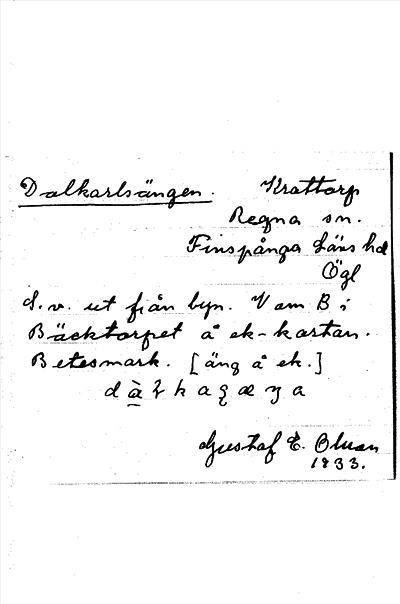 Dalkarlsängen. Krattorp
Regna sn.
Finspånga läns hd
Ögl
S.v. ut från byn. V om B i
Bäcktorpet å ek-kartan.
Betesmark. [äng å ek.]
Gustaf E. Olman
1933.